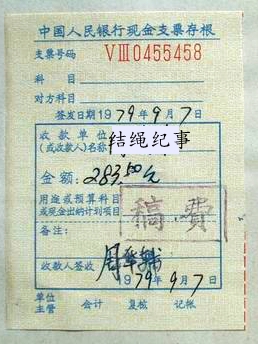 中国人民银行现金支票存根
支票号码 VIII0455458
科目
对方科目
签发日1979年9月7日
收款单位
(或收款人)名称
结绳纪事
金额:283.50元
用途或预算科目
或现金出纳计划项目
稿费
备注:
收款人签收
1979年9月7日
单位
主管 会计 复核 记帐